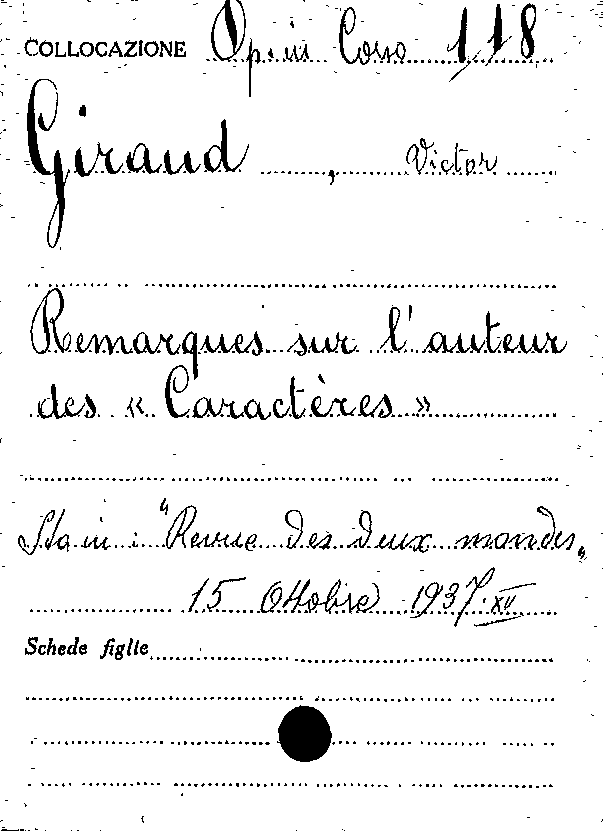 COLLOCAZIONE Op. in Corso 118
Giraud, Victor
Remarques sur l'auteur
des « Caractères »
Sta in: "Revue des deux mondes"
15 Ottobre 1937. XV
Schede figlie